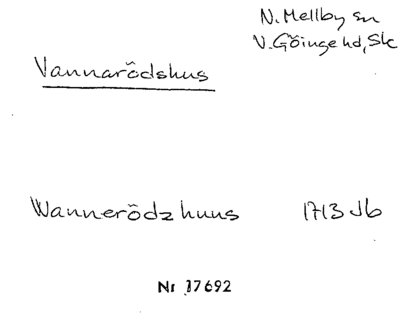 N. Mellby sn
V. Göinge hd, Sk
Vannarödshus
Wannerödz huus 1713 Jb
Nr 17692